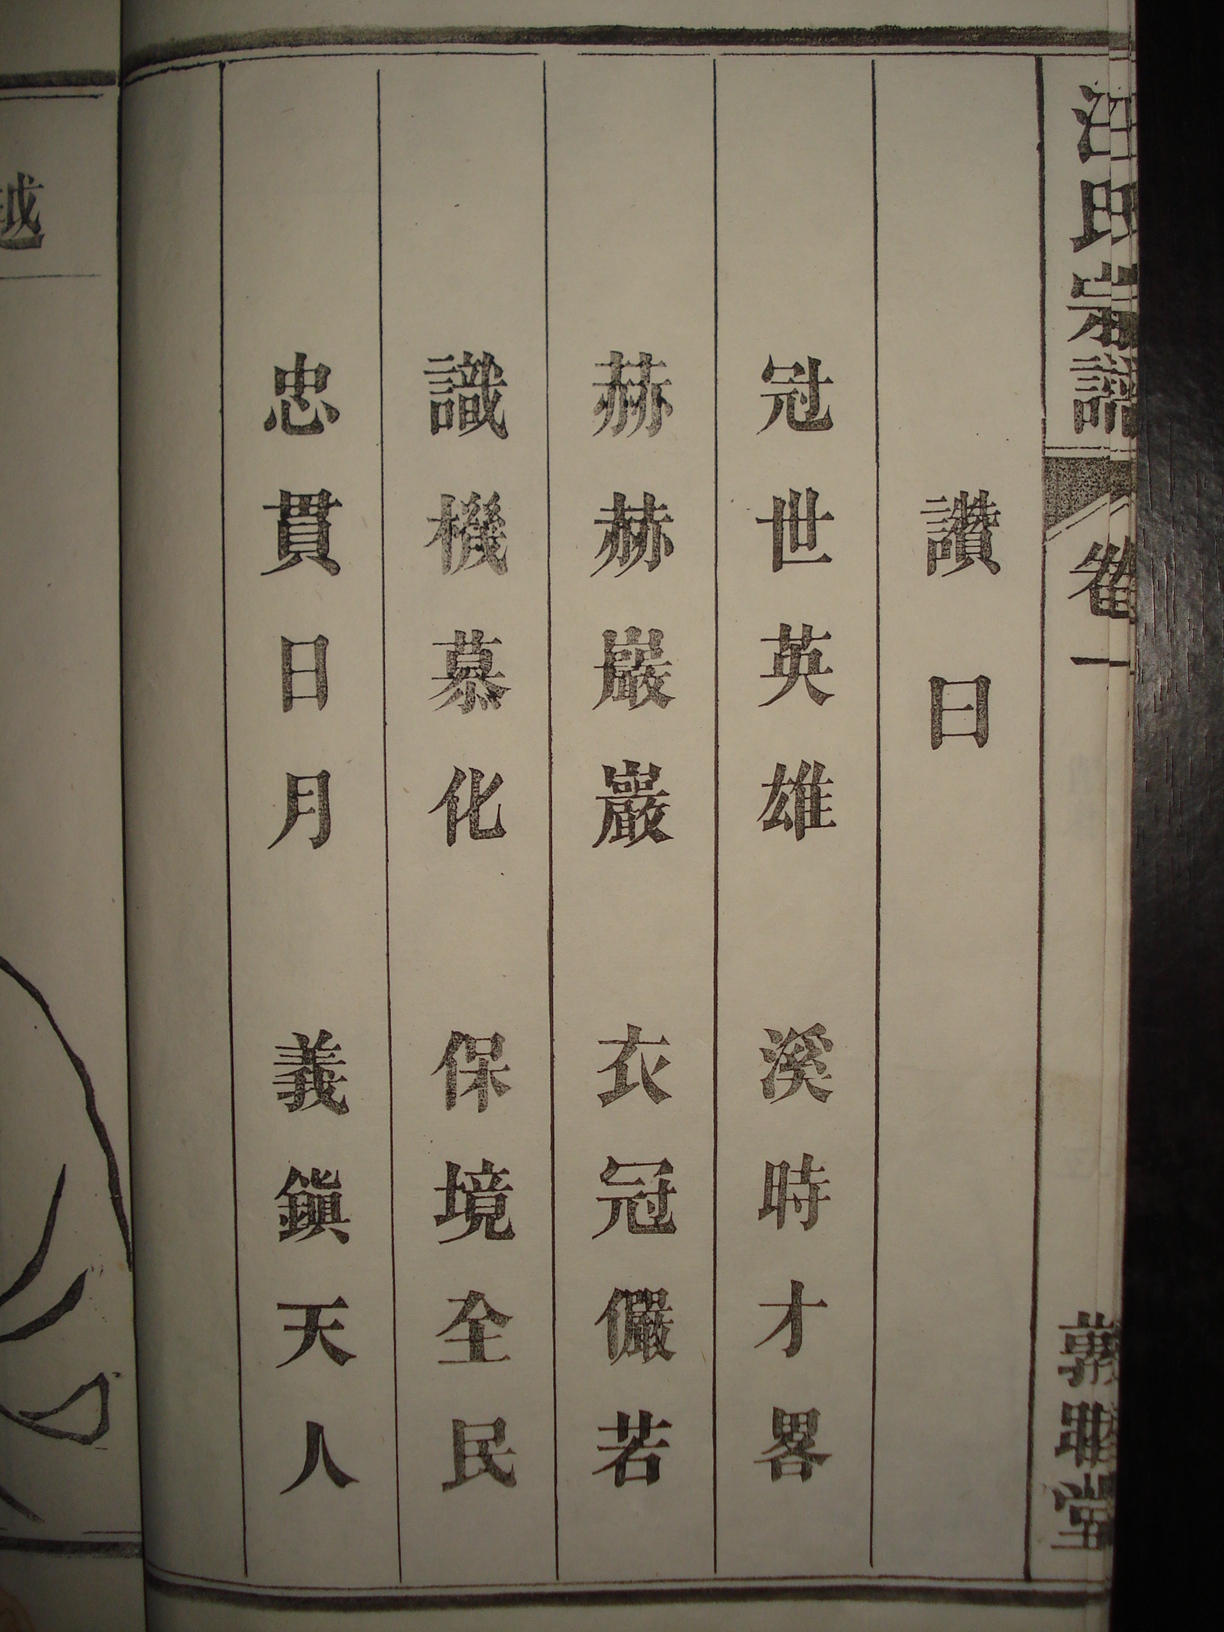 汪氏宗譜
卷一
敦睦堂
讚曰
冠世英雄 溪時才畧
赫赫巖巖 衣冠儼若
識機慕化 保境全民
忠貫日月 義鎮天人
越